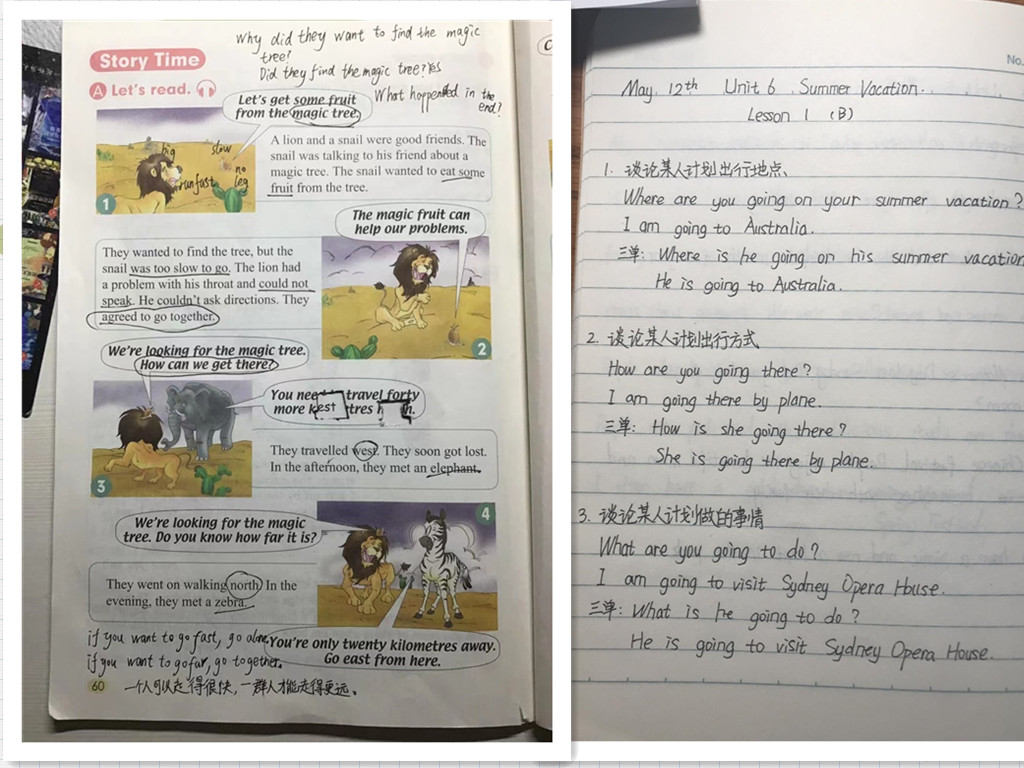 Why did they want to find the magic
tree?
Did they find the magic tree? Yes
What hoppended in the
end?
Story Time
A Let's read.
Let's get some fruit
from the magic tree.
big
slow
run fast
no
leg
1
A lion and a snail were good friends. The
snail was talking to his friend about a
magic tree. The snail wanted to eat some
fruit from the tree.
The magic fruit can
help our problems.
They wanted to find the tree, but the
snail was too slow to go. The lion had
a problem with his throat and could not
speak. He couldn't ask directions. They
agreed to go together.
2
We're looking for the magic tree.
How can we get there?
You need travel forty
more k est tres h.
They travelled west. They soon got lost.
In the afternoon, they met an elephant.
3
We're looking for the magic
tree. Do you know how far it is?
4
They went on walking north. In the
evening, they met a zebra.
You're only twenty kilometres away.
Go east from here.
if you want to go fast, go alone.
if you want to go far, go together.
60
一个人可以走得很快，一群人才能走得更远。
No.
May. 12th Unit 6 Summer Vacation.
Lesson 1 (B)
1. 谈论某人计划出行地点、
Where are you going on your summer vacation?
I am going to Australia.
三单: Where is he going on his summer vacation
He is going to Australia.
2. 谈论某人计划出行方式
How are you going there?
I am going there by plane.
三单: How is she going there?
She is going there by plane.
3. 谈论某人计划做的事情
What are you going to do?
I am going to visit Sydney Opera House.
三单: What is he going to do?
He is going to visit Sydney Opera House.